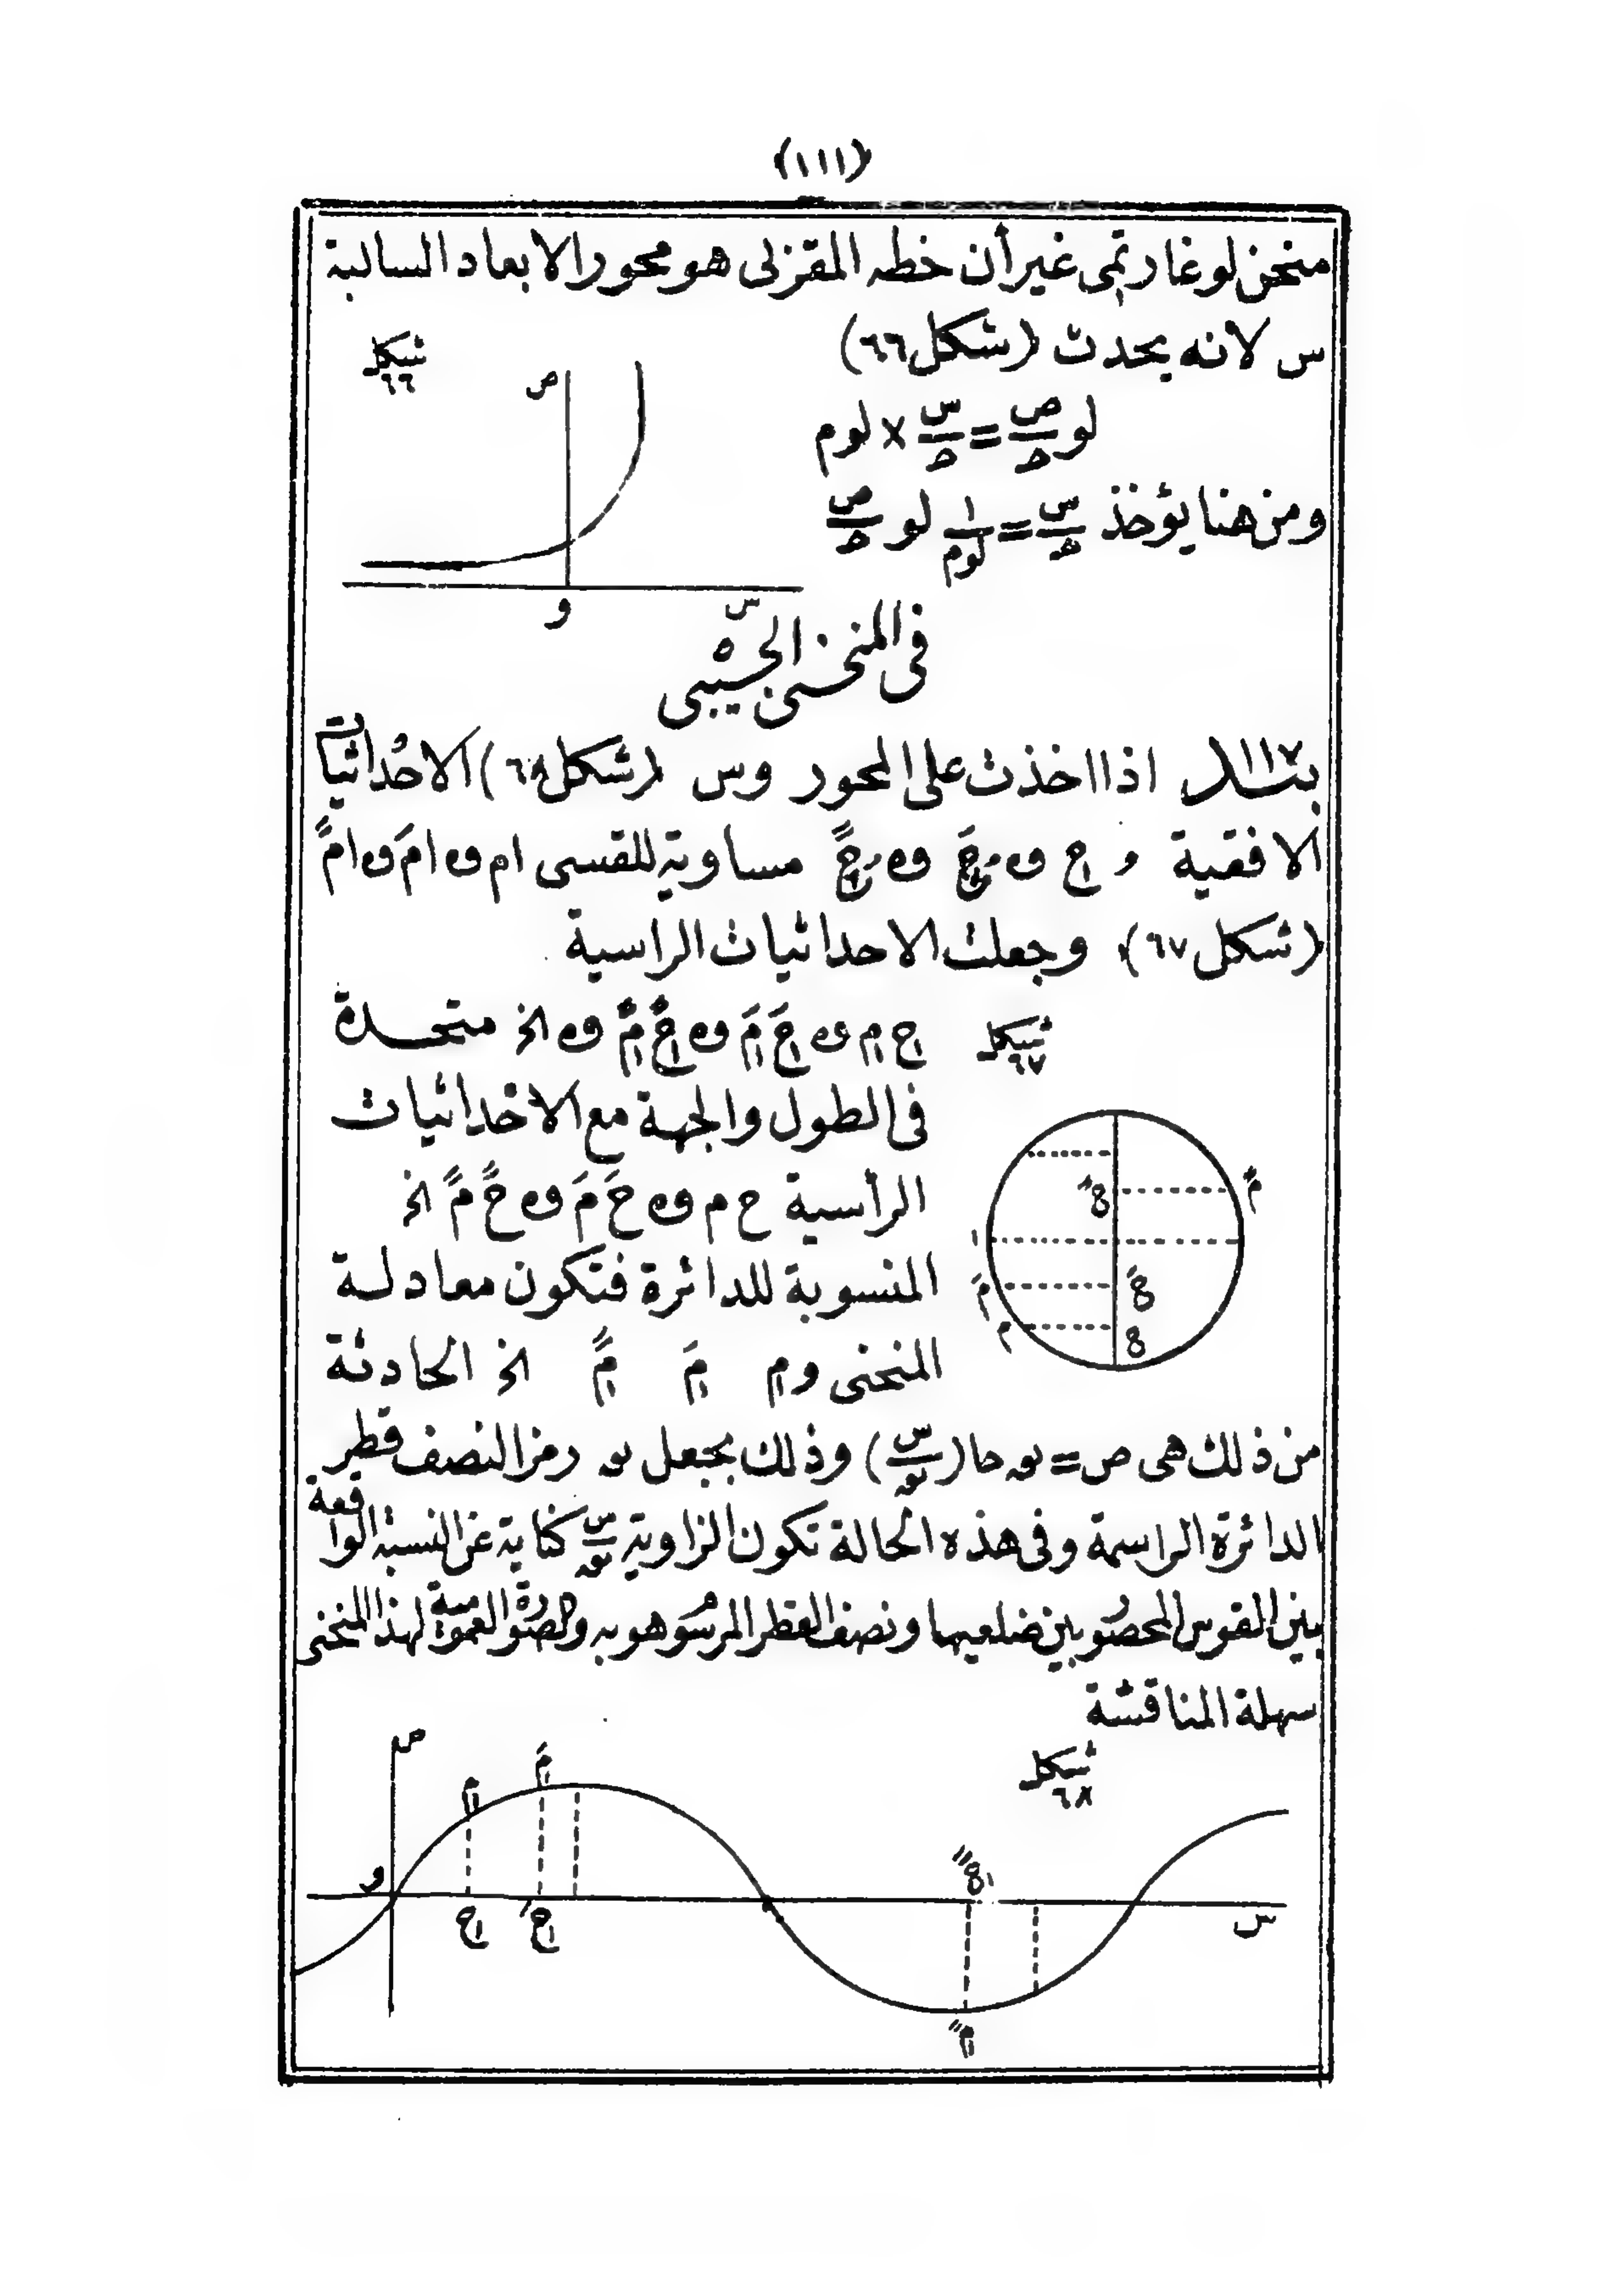 (١١١)
منحن لوغارتمى غير أن خطه المقزلى هو محور الابعاد السالبة
س لانه يحدث (شكل ٦٦)
شكل ٦٦
ص
لو ص/ح = س/ح × لو م
ومن هنا يؤخذ س/ح = ١/لو م لو ص/ح
و
س
فى المنحنى الجيبى
بند ١١٢ اذا اخذت على المحور وس (شكل ٦٨) الاحداثيات
الافقية وج و وجَ و وجً مساوية للقسى ام و امَ و امً
(شكل ٦٧) وجعلت الاحداثيات الراسية
شكل ٦٧
ج م و جَ مَ و جً مً و الخ متحدة
فى الطول والجهة مع الاحداثيات
الرأسية ح م و حَ مَ و حً مً الخ
المنسوبة للدائرة فتكون معادلة
المنحنى وم مَ مً الخ الحادثة
من ذلك هى ص = نه حا (س/نه) وذلك بجعل نه رمزا لنصف قطر
الدائرة الراسمة وفى هذه الحالة تكون الزاوية س/نه كناية عن النسبة الواقعة
بين القوس المحصور بين ضلعيها ونصف القطر المرسوم هو به والصورة العمومية لهذا المنحنى
سهلة المناقشة
شكل ٦٨
ص
م
مَ
و
ج
جَ
حً
س
مً